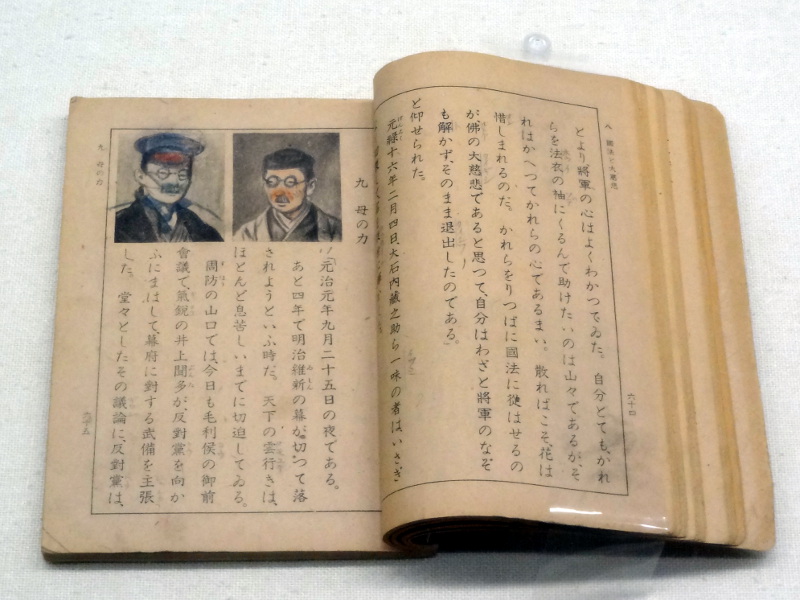 八 國法と大慈悲
六十四
とより將軍の心はよくわかつてゐた。自分とても、かれ
らを法衣の袖にくるんで助けたいのは山々であるが、そ
れはかへつてかれらの心であるまい。散ればこそ、花は
惜しまれるのだ。かれらをりつぱに國法に從はせるの
が、佛の大慈悲であると思つて、自分はわざと將軍のなぞ
も解かず、そのまま退出したのである。」
と仰せられた。
元祿十六年二月四日、大石内藏之助ら一味の者は、いさぎ
九 母の力
元治元年九月二十五日の夜である。
あと四年で明治維新の幕が切つて落
されようといふ時だ。天下の雲行きは、
ほとんど息苦しいまでに切迫してゐる。
周防の山口では、今日も毛利侯の御前
會議で、氣鋭の井上聞多が、反對黨を向か
ふにまはして、幕府に對する武備を主張
した。堂々としたその議論に、反對黨は、
九 母の力
六十五